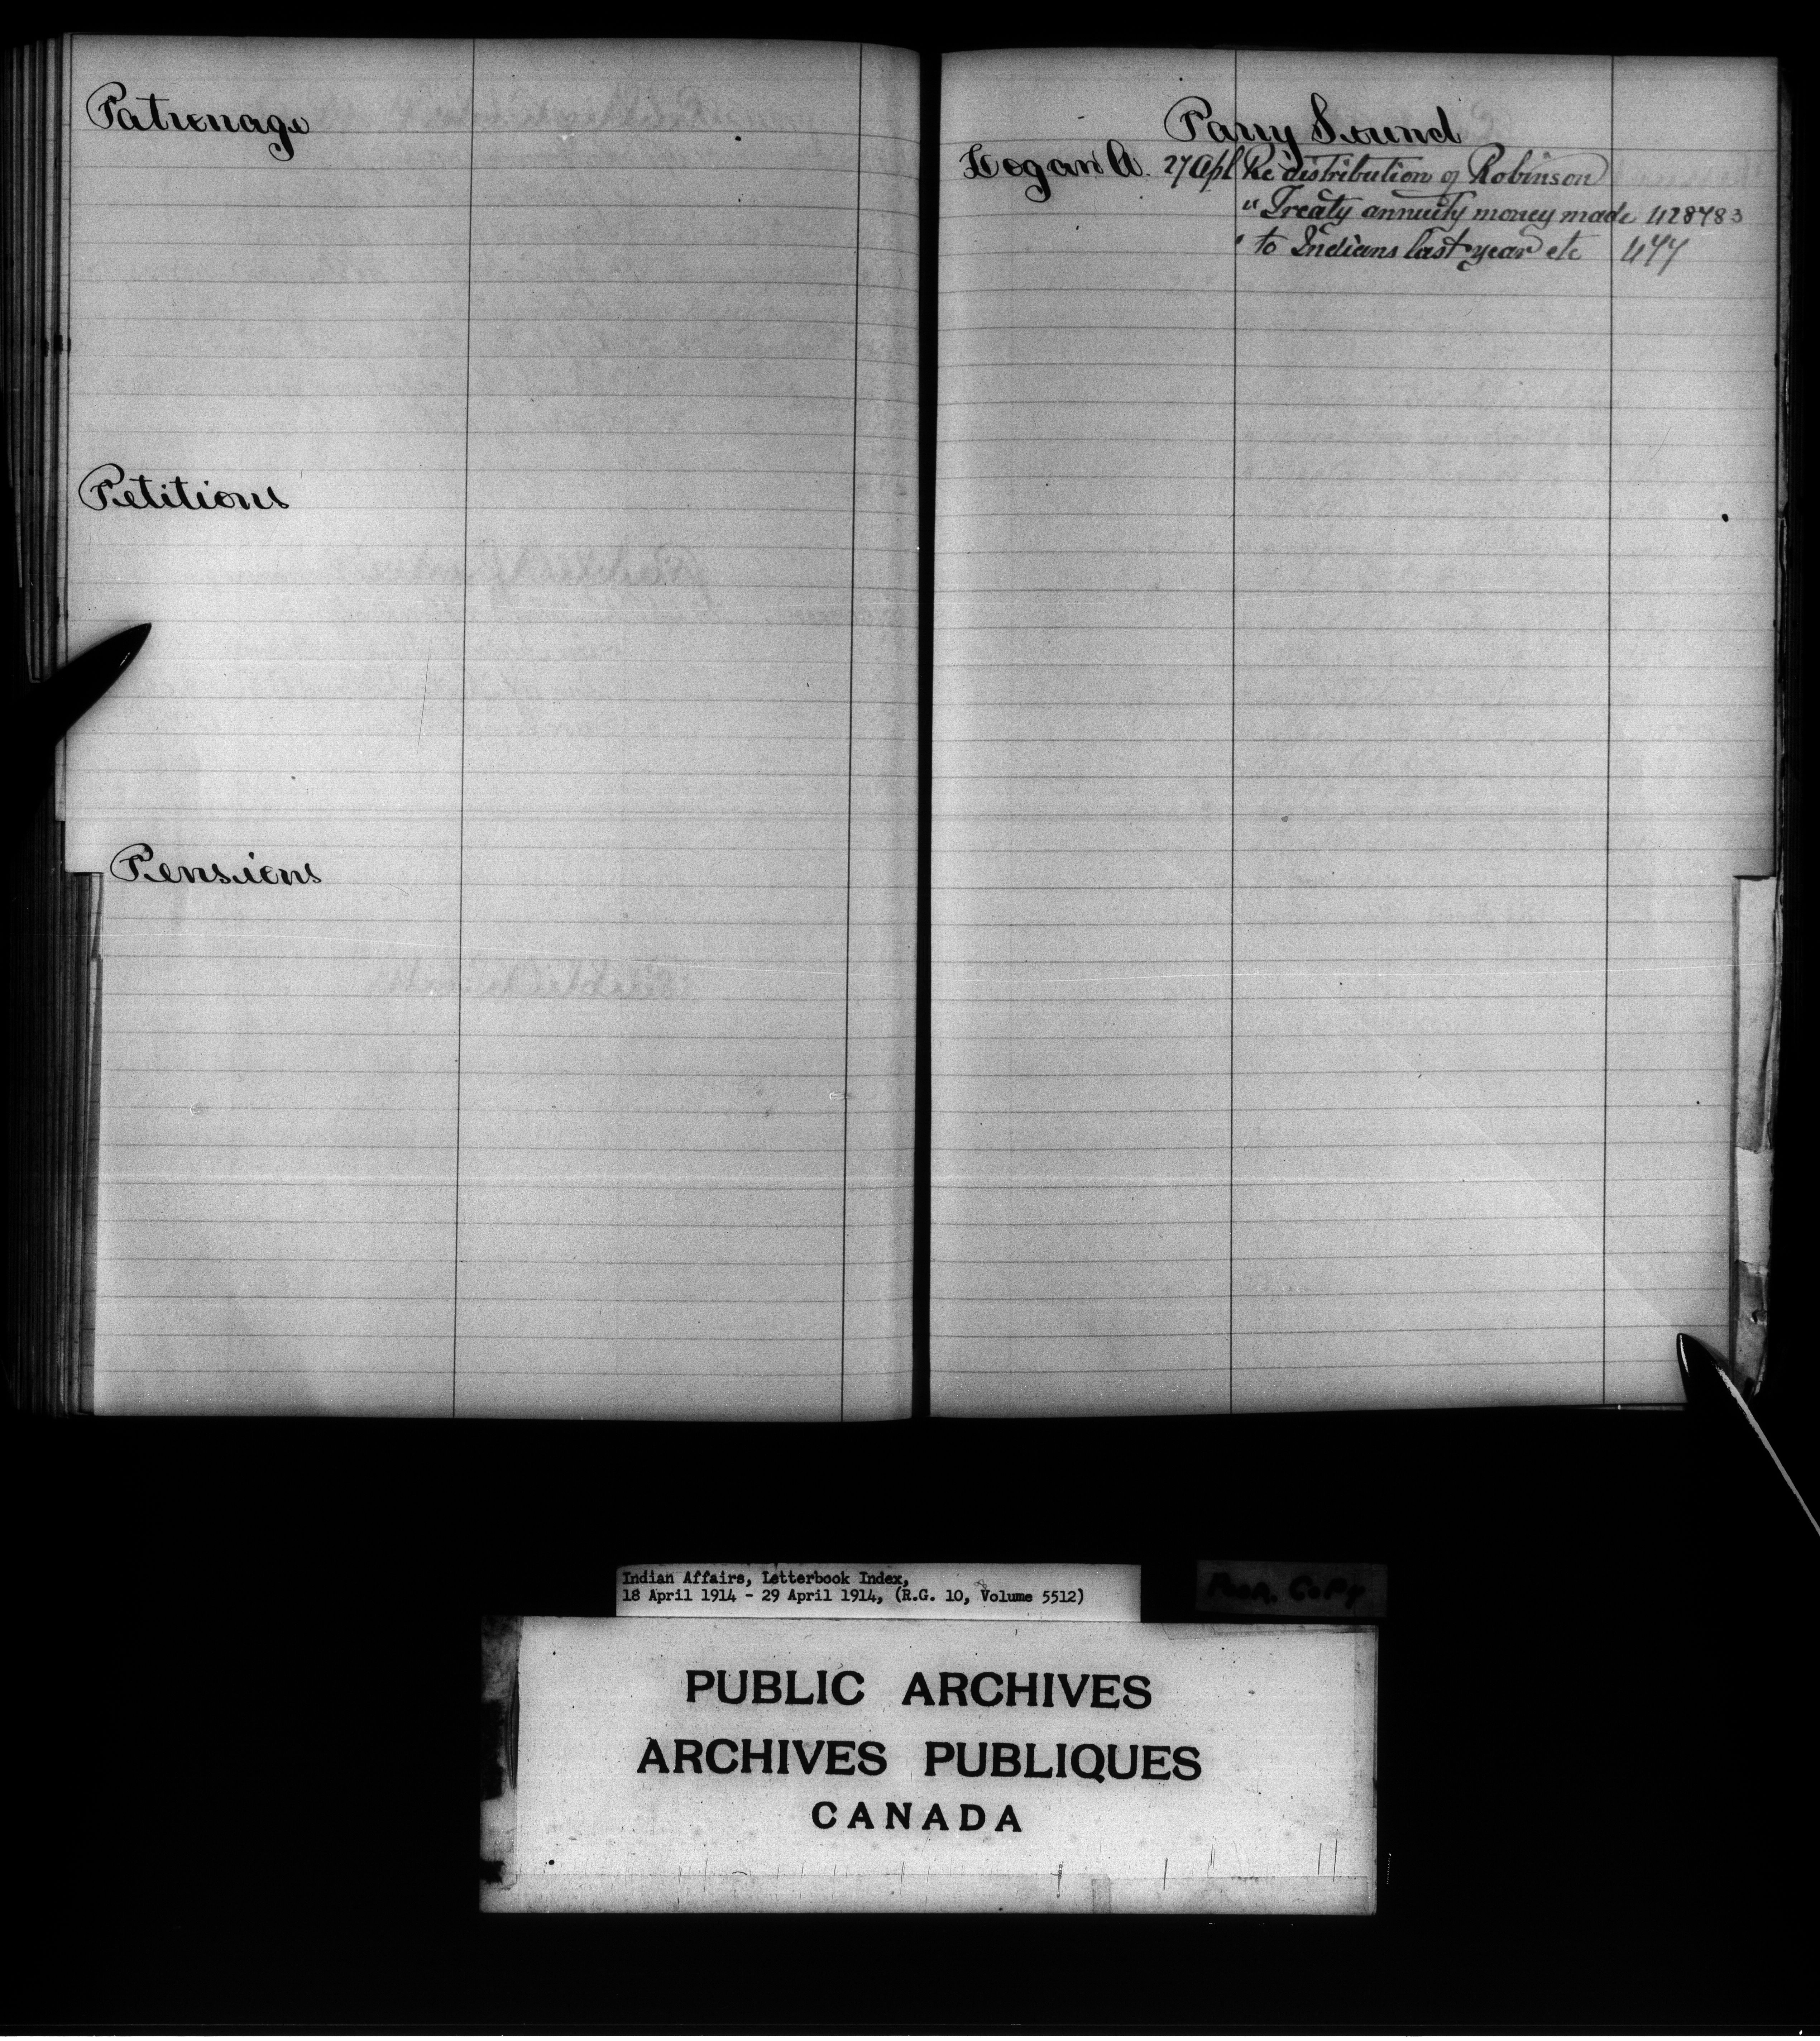 Patronage
Petitions
Pensions
Parry Sound
Logan A. 27 Apl Re distribution of Robinson
" Treaty annuity money made 428483
" to Indians last year etc 477
Indian Affairs, Letterbook Index,
18 April 1914 - 29 April 1914, (R.G. 10, Volume 5512)
Poor Copy
PUBLIC ARCHIVES
ARCHIVES PUBLIQUES
CANADA